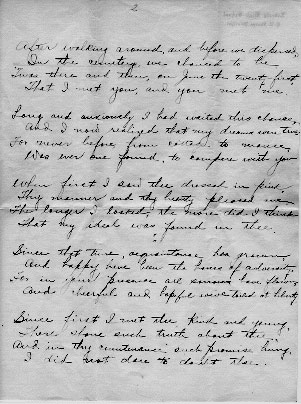 2
After walking around, and before we dispersed,
In the cemetery we chanced to be
'Twas there and then, on June the twenty first
That I met you, and you met me.
Long and anxiously I had waited this chance,
And I now realized that my dreams were true,
For never before, from to
Was ever one found, to compare with you
When first I saw thee dressed in pink,
Thy manner and thy beauty pleased me
The longer I looked, the more did I think
That my ideal was found in thee.
Since that time, acquaintance has grown
And happy have been the hours of
For in your presence all sorrows have flown
And cheerful and
Since first I met thee kind and young,
There shone such truth about thee
And in thy countenance such promise hung,
I did not dare to doubt thee.